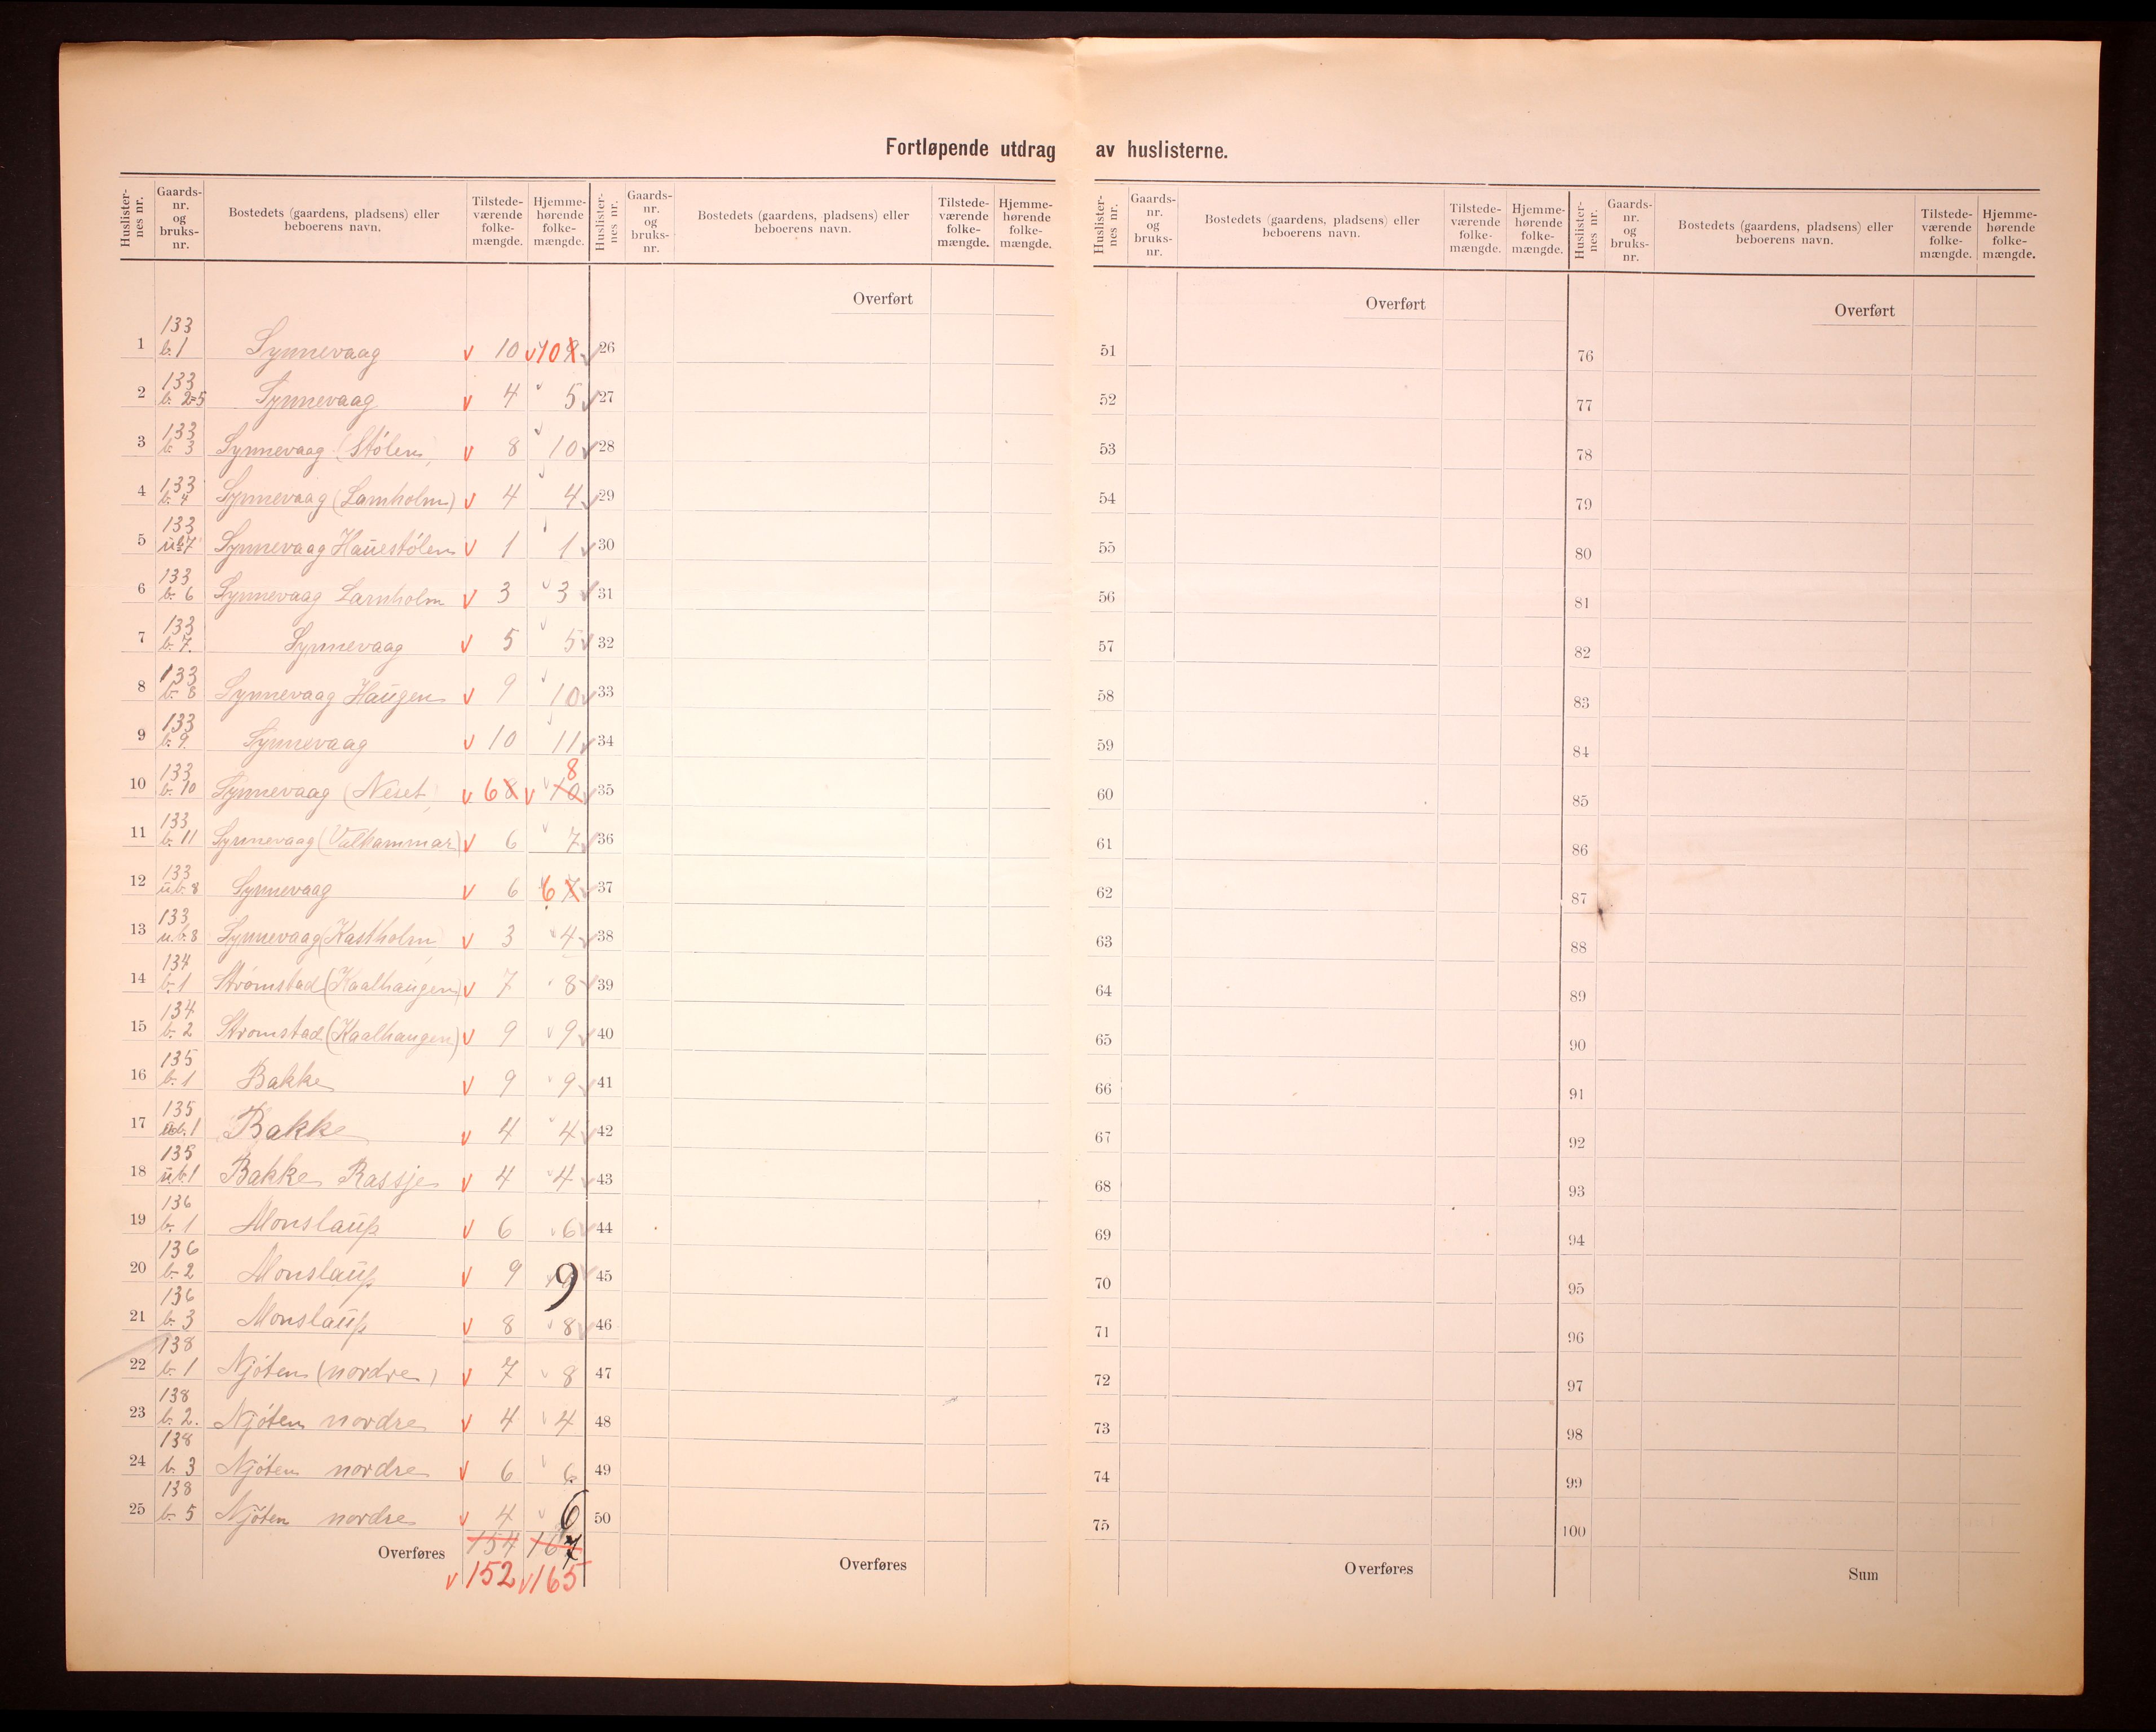 Fortløpende utdrag av huslisterne.
Huslister-nes nr. Gaards-nr. og bruks-nr. Bostedets (gaardens, pladsens) eller beboerens navn. Tilstede-værende folke-mængde. Hjemme-hørende folke-mængde.
1 133 b. 1 Synnevaag 10 10 9
2 133 b. 2-5 Synnevaag 4 5
3 133 b. 3 Synnevaag (Stølen) 8 10
4 133 b. 4 Synnevaag (Lamholm) 4 4
5 133 ub 7 Synnevaag Hauestølen 1 1
6 133 b. 6 Synnevaag Larnholm 3 3
7 133 b. 7. Synnevaag 5 5
8 133 b. 8 Synnevaag Haugen 9 10
9 133 b. 9. Synnevaag 10 11
10 133 b. 10 Synnevaag (Neset) 6 8 10 8
11 133 b. 11 Synnevaag (Valhammar) 6 7
12 133 u.b. 8 Synnevaag 6 6 7
13 133 u.b. 8 Synnevaag (Kastholm) 3 4
14 134 b. 1 Strømstad (Kaalhaugen) 7 8
15 134 b. 2 Strømstad (Kaalhaugen) 9 9
16 135 b. 1 Bakke 9 9
17 135 ub. 1 Bakke 4 4
18 135 u.b. 1 Bakke Rassje 4 4
19 136 b. 1 Monslaup 6 6
20 136 b. 2 Monslaup 9 9
21 136 b. 3 Monslaup 8 8
22 138 b. 1 Njøten (nordre) 7 8
23 138 b. 2. Njøten nordre 4 4
24 138 b. 3 Njøten nordre 6 6
25 138 b. 5 Njøten nordre 4 6
Overføres 154 167
152 165
Huslister-nes nr. Gaards-nr. og bruks-nr. Bostedets (gaardens, pladsens) eller beboerens navn. Tilstede-værende folke-mængde. Hjemme-hørende folke-mængde.
Overført
26
27
28
29
30
31
32
33
34
35
36
37
38
39
40
41
42
43
44
45
46
47
48
49
50
Overføres
Huslister-nes nr. Gaards-nr. og bruks-nr. Bostedets (gaardens, pladsens) eller beboerens navn. Tilstede-værende folke-mængde. Hjemme-hørende folke-mængde.
Overført
51
52
53
54
55
56
57
58
59
60
61
62
63
64
65
66
67
68
69
70
71
72
73
74
75
Overføres
Huslister-nes nr. Gaards-nr. og bruks-nr. Bostedets (gaardens, pladsens) eller beboerens navn. Tilstede-værende folke-mængde. Hjemme-hørende folke-mængde.
Overført
76
77
78
79
80
81
82
83
84
85
86
87
88
89
90
91
92
93
94
95
96
97
98
99
100
Sum